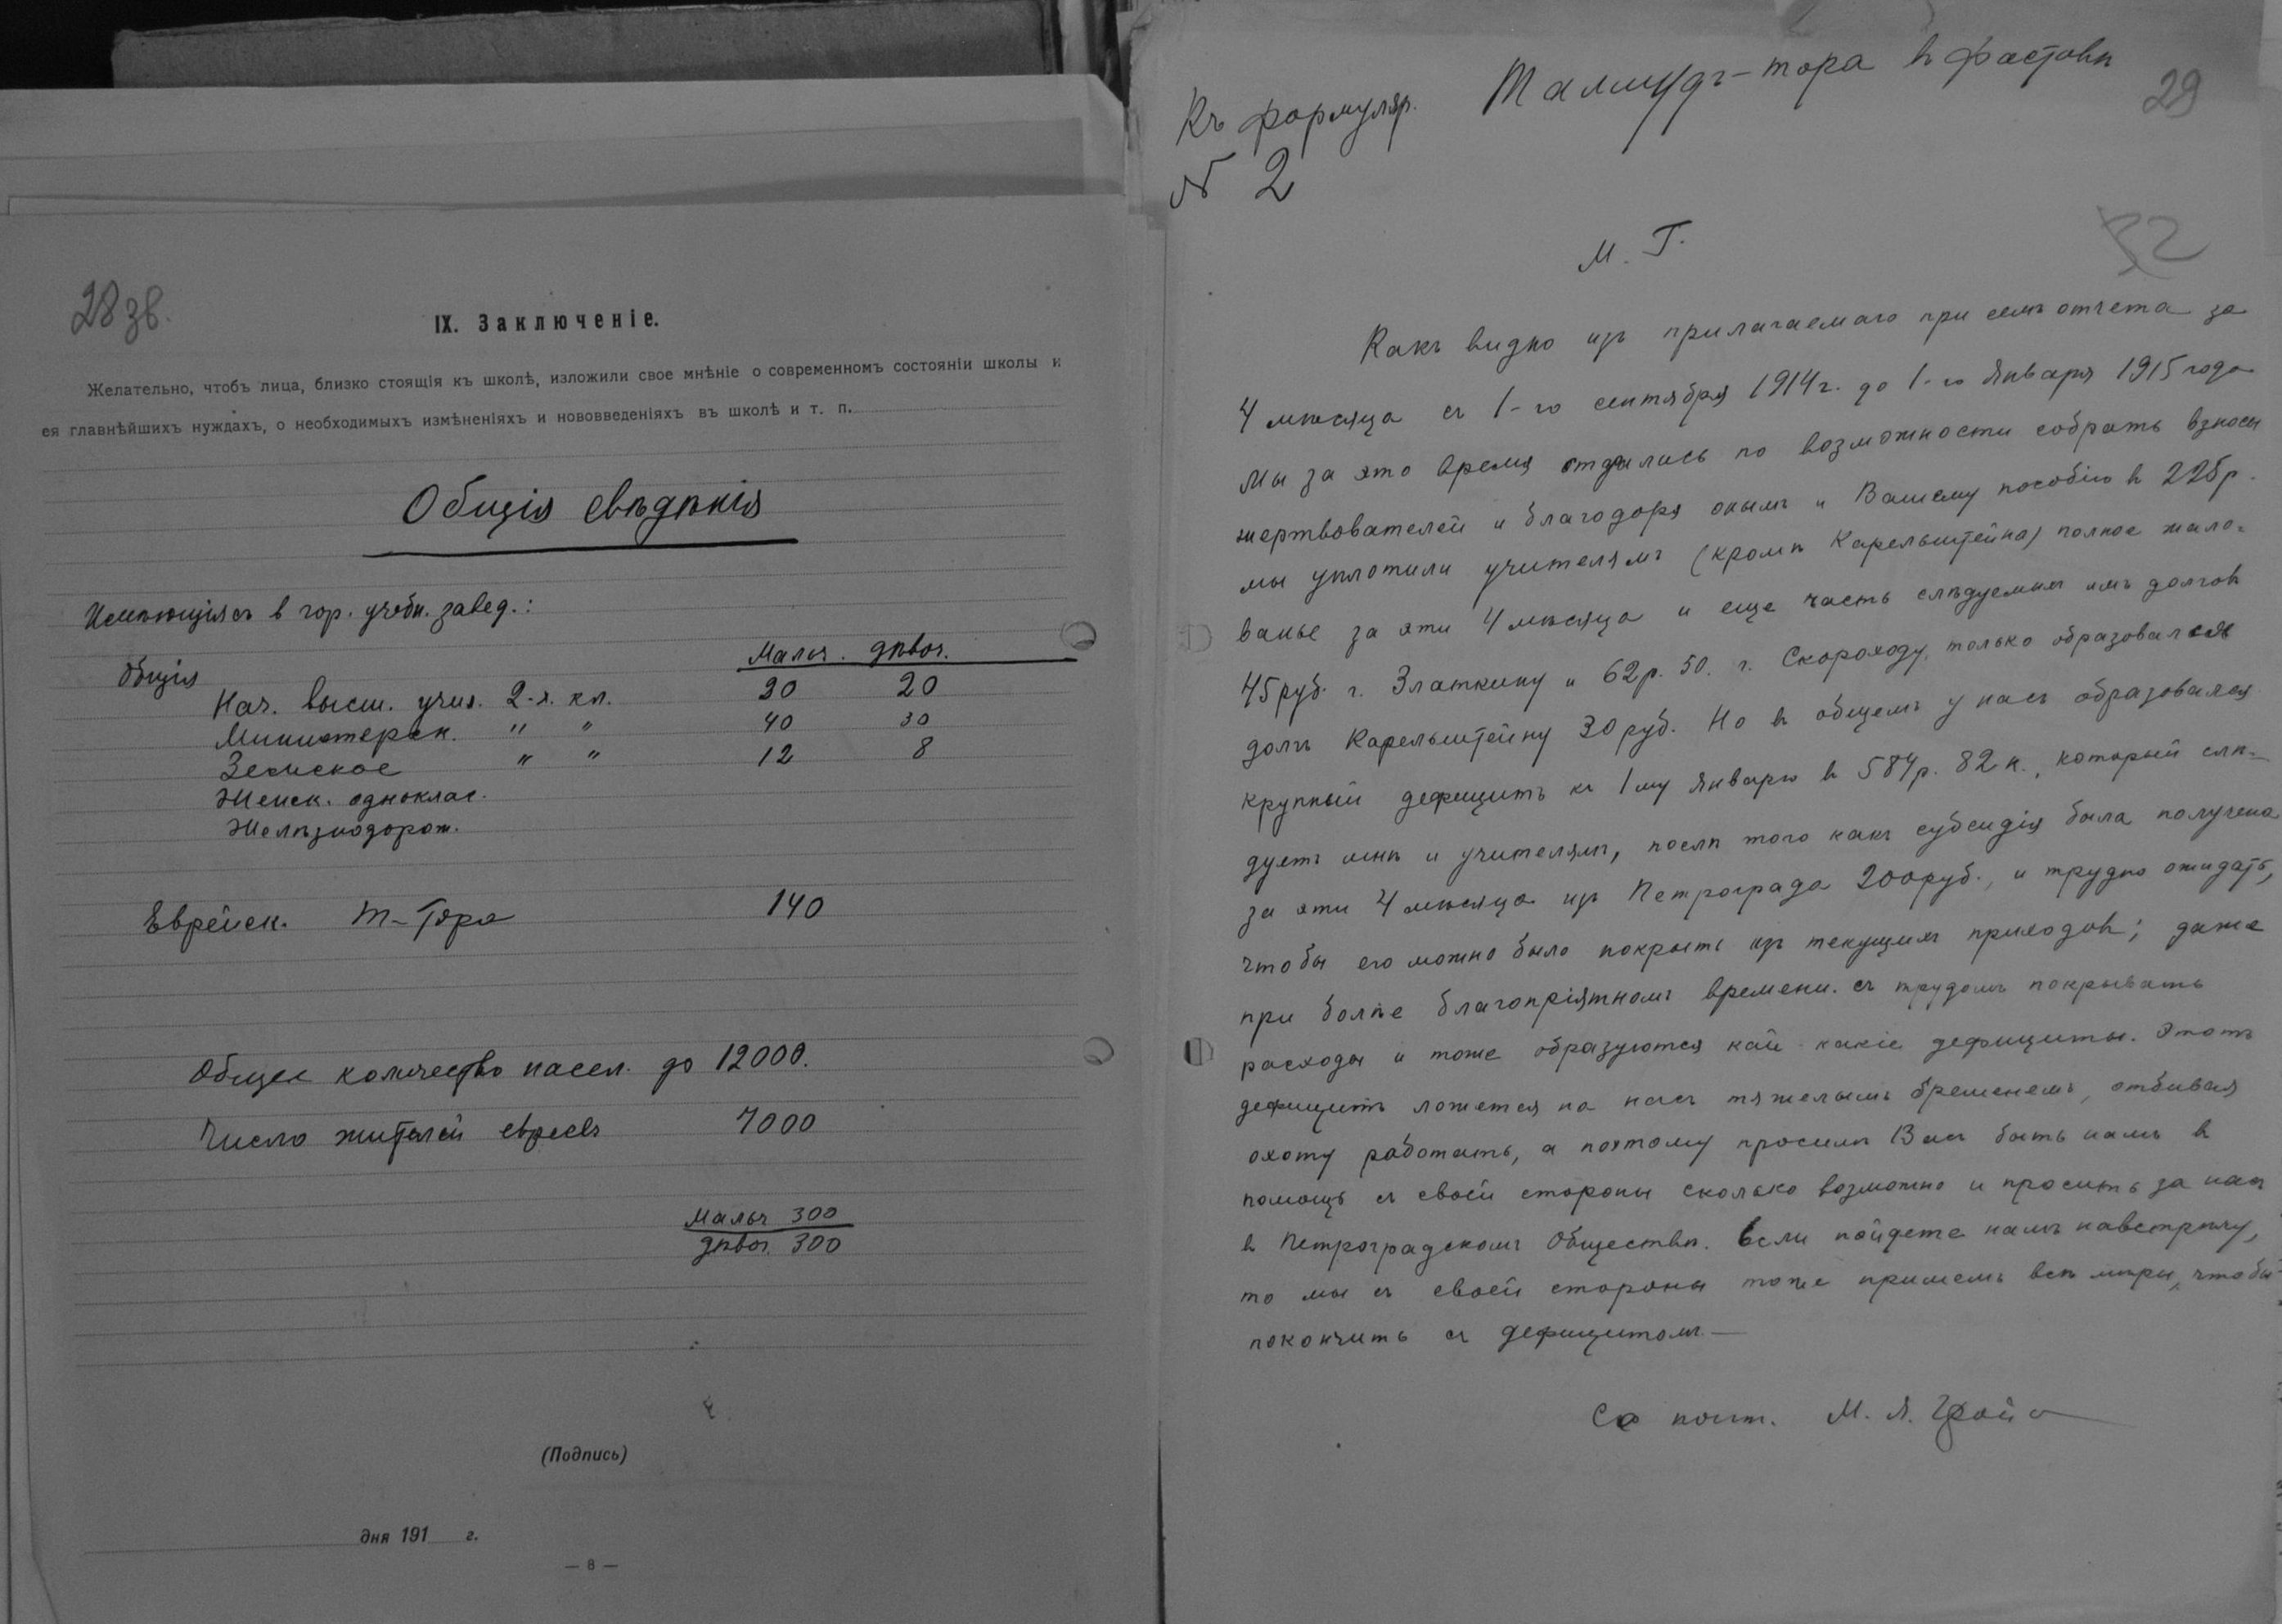 28 зв.
IX. Заключеніе.
Желательно, чтобъ лица, близко стоящія къ школѣ, изложили свое мнѣніе о современномъ состояніи школы и
ея главнѣйшихъ нуждахъ, о необходимыхъ измѣненіяхъ и нововведеніяхъ въ школѣ и т. п.
Общія свѣдѣнія
Имѣющіяся в гор. учебн. завед.:
Мальч. дѣвоч.
Общія
Нач. высш. учил. 2-х. кл. 30 20
Министерск. " " 40 30
Земское " " 12 8
Женск. одноклас.
Желѣзнодорож.
Еврейск. Т-Тора 140
Общее количество насел. до 12000.
Число жителей евреевъ 7000
Мальч 300
дѣвоч. 300
(Подпись)
дня 191 г.
— 8 —
Къ формуляр. Талмудъ-тора в Фастовѣ
29
№ 2
М. Г.
52
Какъ видно изъ прилагаемаго при семъ отчета за
4 мѣсяца съ 1-го сентября 1914 г. до 1-го Января 1915 года
Мы за это время по возможности собрать взносы
жертвователей и благодаря онымъ и Вашему пособію в 225 р.
мы уплотили учителямъ (кромѣ Карельштейна) полное жало-
ванье за эти 4 мѣсяца и еще часть слѣдуемых имъ долгов
45 руб. г. Златкину и 62 р. 50. г. Скороходу, только образовался
долгъ Карельштейну 30 руб. Но в общемъ у насъ образовался
крупный дефицитъ къ 1му Январю в 584 р. 82 к., который слѣ-
дуетъ мнѣ и учителямъ, послѣ того какъ субсидія была получена
за эти 4 мѣсяца изъ Петрограда 200 руб., и трудно ожидать,
чтобы его можно было покрыть изъ текущих приходов; даже
при болѣе благопріятномъ времени съ трудомъ покрывать
расходы и тоже образуются кай какіе дефициты. Этотъ
дефицитъ ложется на насъ тяжелымъ бременемъ, отбивая
охоту работать, а поэтому просимъ Вас быть намъ в
помощь съ своей стороны сколько возможно и просить за нас
в Петроградскомъ Обществѣ. Если пойдете намъ навстрѣчу,
то мы съ своей стороны тоже примемъ всѣ мѣры, чтобы
покончить съ дефицитомъ.—
Съ почт. М. Я.